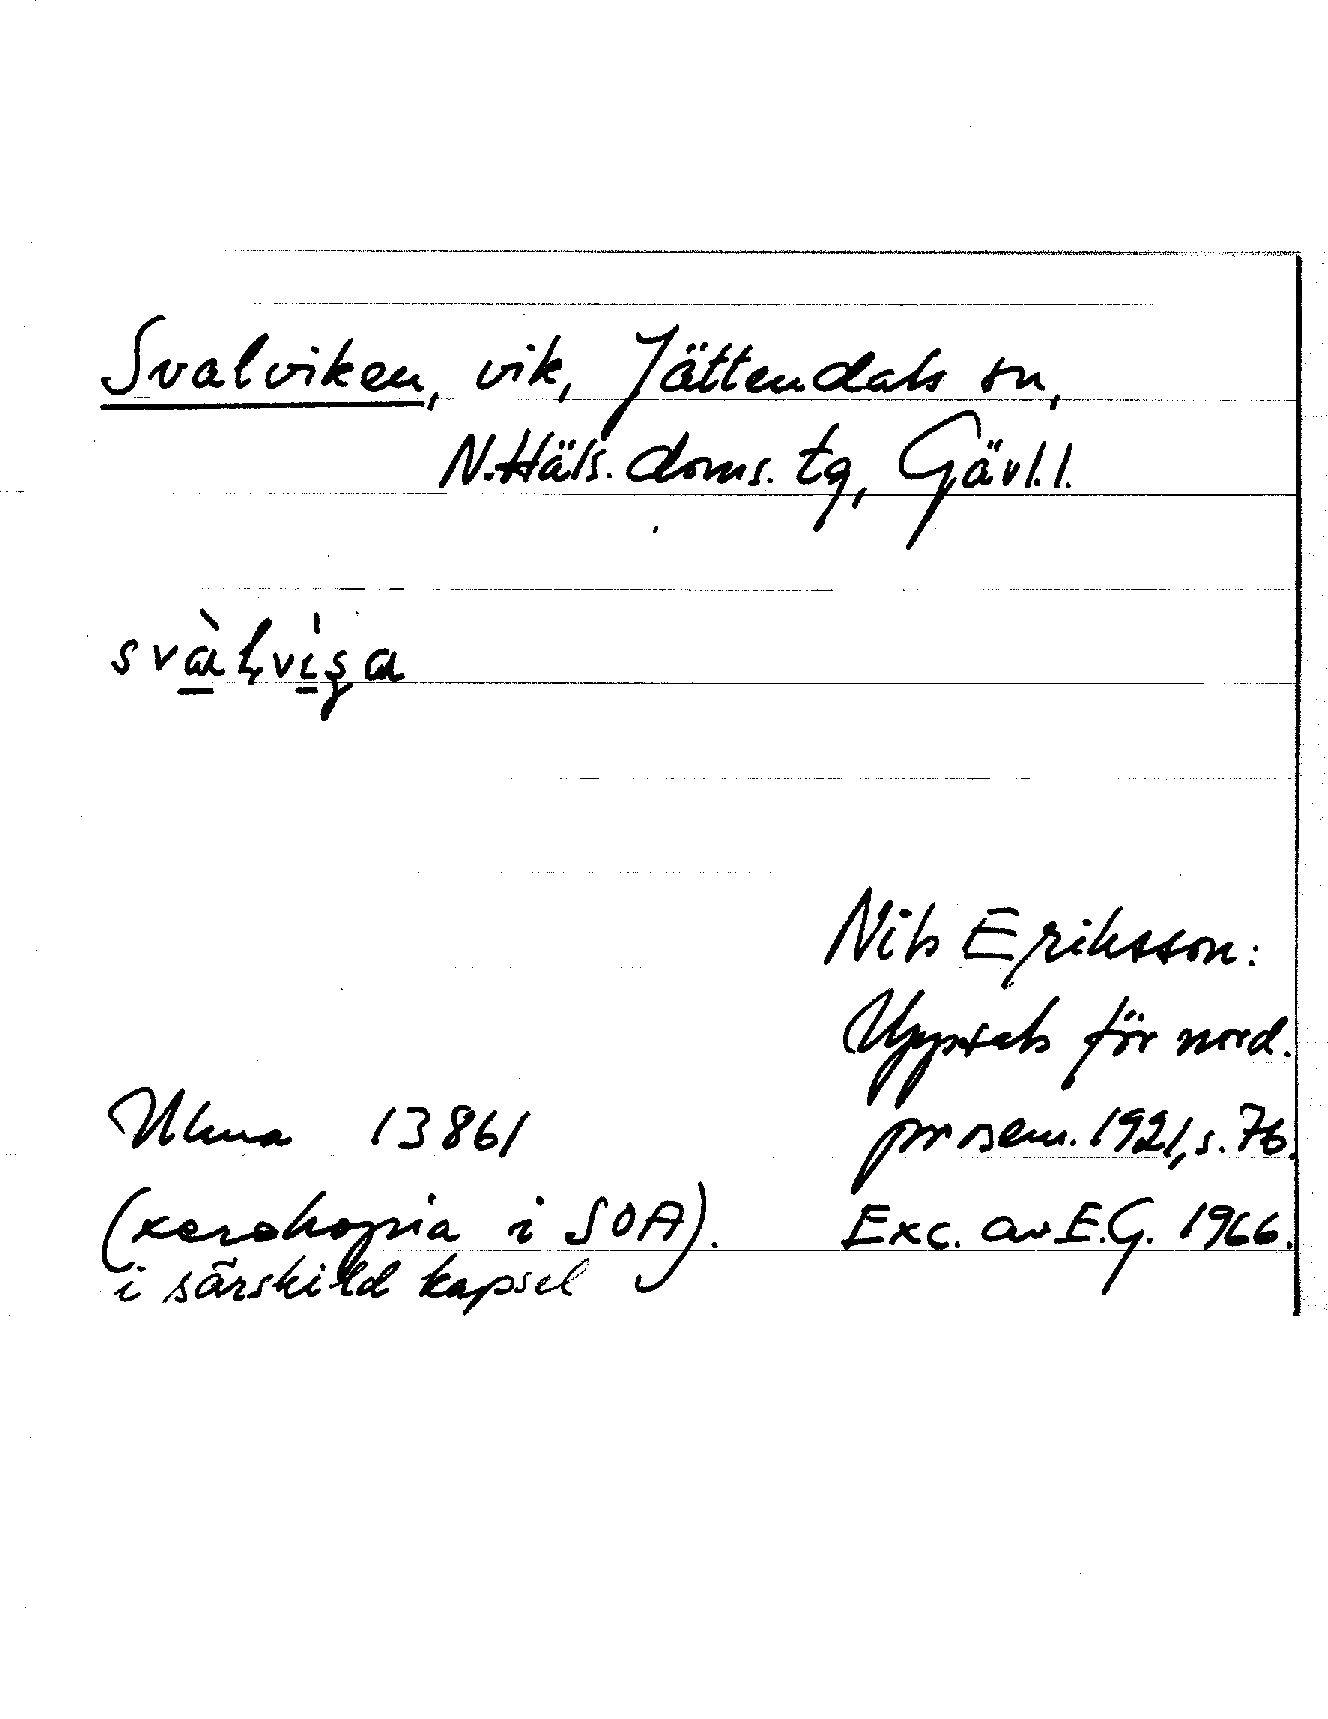 Svalviken, vik, Jättendals sn,
N. Häls. doms. tg, Gävl. l.
svàlvi̍ga
Nils Eriksson:
Uppsats för nord.
prosem. 1921, s. 76.
Ulma 13861
(xerokopia i SOA).
Exc. av E.G. 1966.
i särskild kapsel